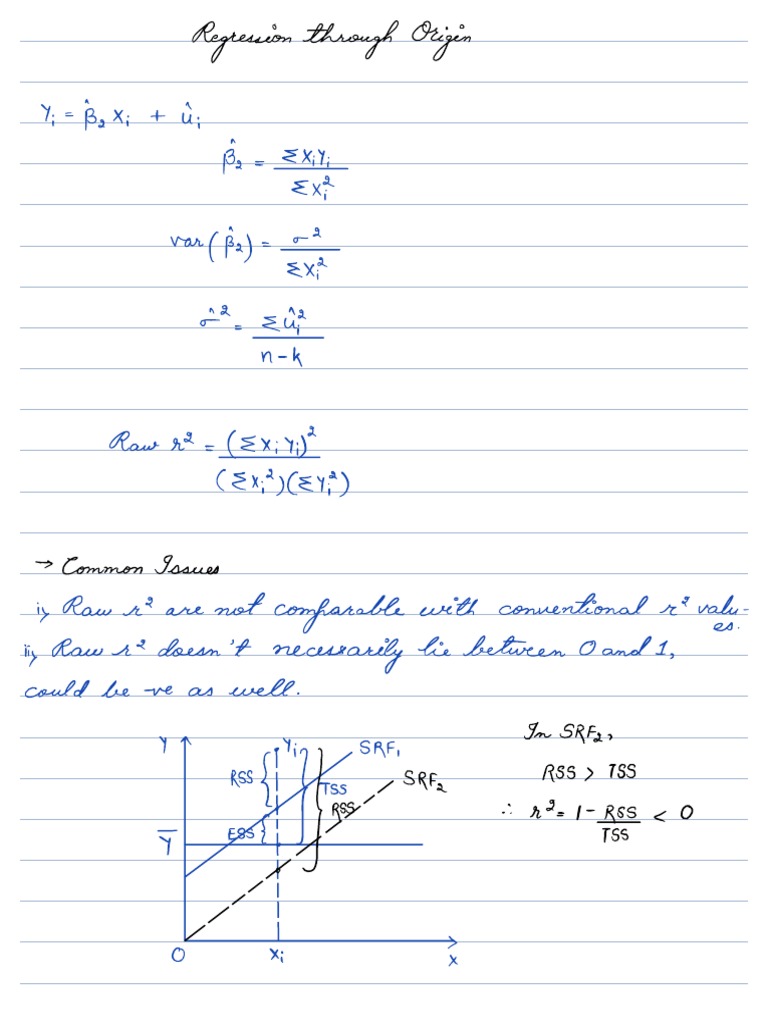 Regression through Origin
Yi = β̂2 Xi + ûi
β̂2 = ΣXiYi / ΣXi²
var(β̂2) = σ² / ΣXi²
σ̂² = Σûi² / n-k
Raw r² = (ΣXiYi)² / (ΣXi²)(ΣYi²)
→ Common Issues
i) Raw r² are not comparable with conventional r² valu-
es.
ii) Raw r² doesn't necessarily lie between 0 and 1,
could be -ve as well.
Y Yi SRF1
RSS TSS SRF2
RSS
ESS
Y̅
O Xi X
In SRF2,
RSS > TSS
∴ r² = 1 - RSS / TSS < 0